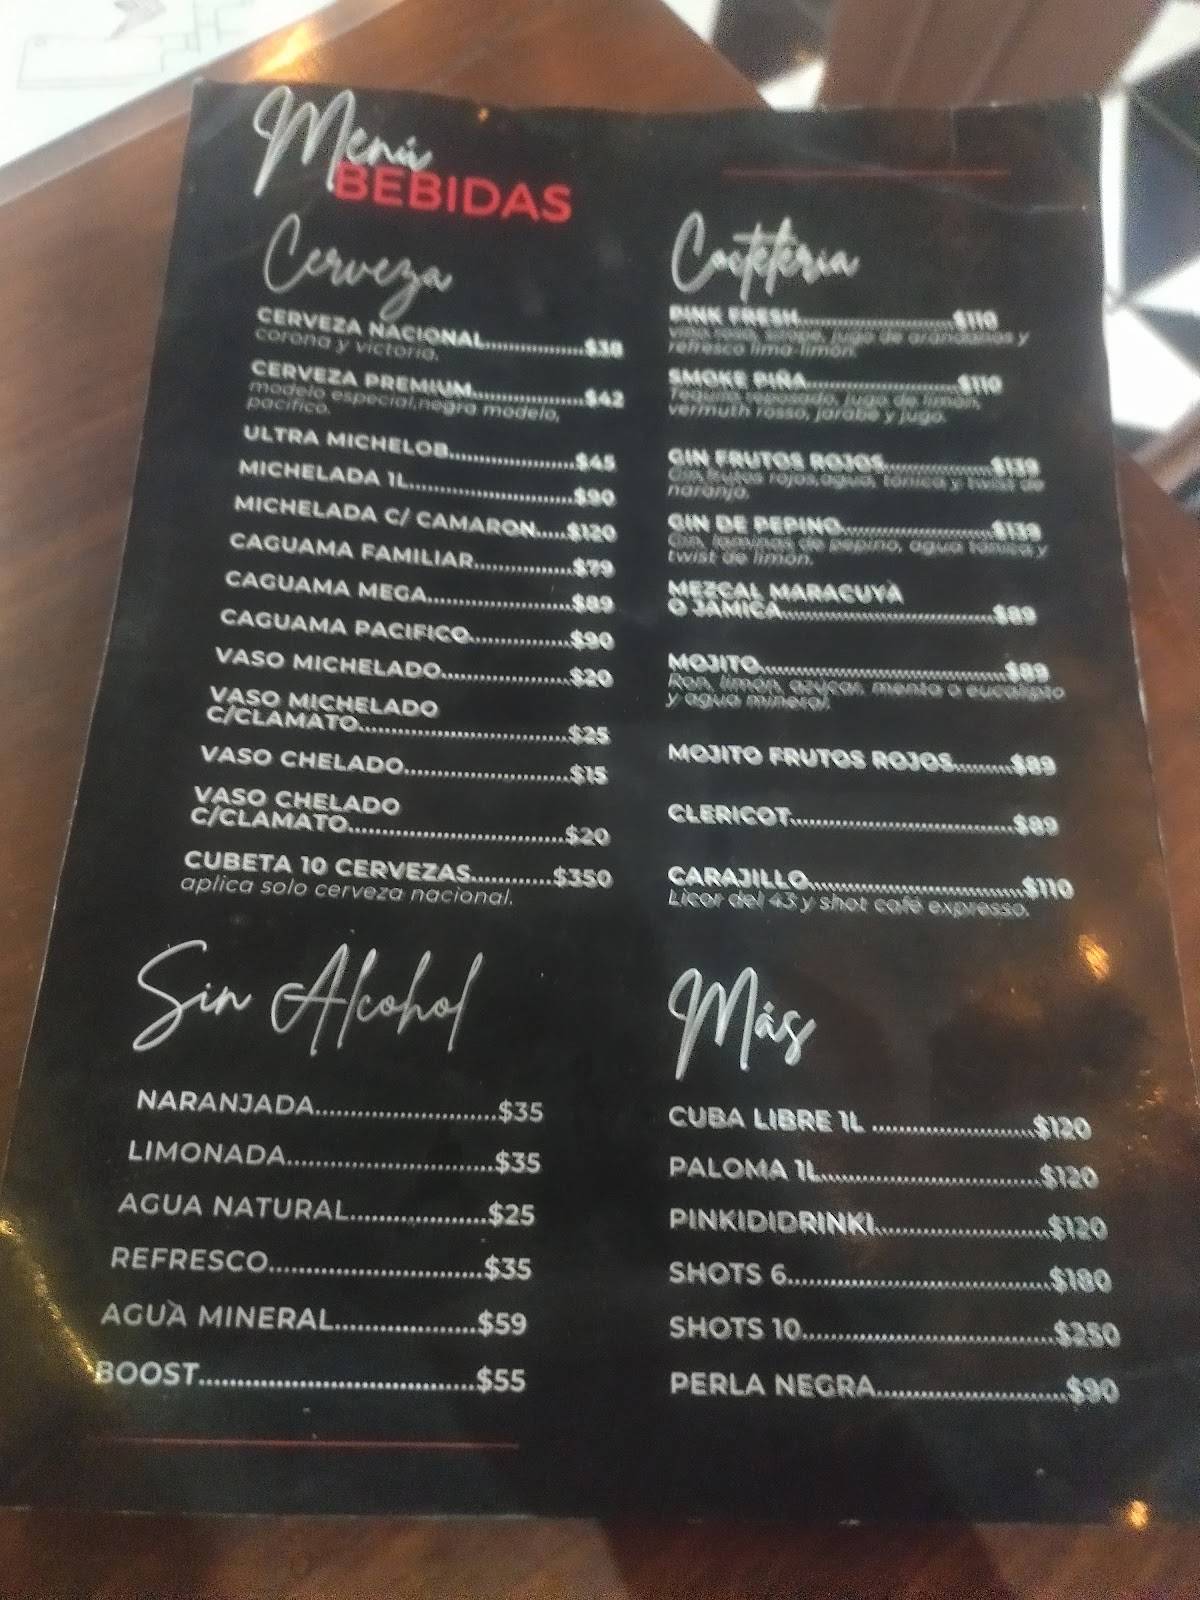 Menú
BEBIDAS
Cerveza
CERVEZA NACIONAL.................$38
corona y victoria.
CERVEZA PREMIUM...................$42
modelo especial,negra modelo,
pacifico.
ULTRA MICHELOB.....................$45
MICHELADA 1L..........................$90
MICHELADA C/ CAMARON.....$120
CAGUAMA FAMILIAR................$79
CAGUAMA MEGA........................$89
CAGUAMA PACIFICO.................$90
VASO MICHELADO.....................$20
VASO MICHELADO
C/CLAMATO..................................$25
VASO CHELADO...........................$15
VASO CHELADO
C/CLAMATO...................................$20
CUBETA 10 CERVEZAS............$350
aplica solo cerveza nacional.
Sin Alcohol
NARANJADA.........................$35
LIMONADA.............................$35
AGUA NATURAL...................$25
REFRESCO..............................$35
AGUA MINERAL....................$59
BOOST.......................................$55
Coctelería
PINK FRESH..........................$110
jugo de arandanos y
refresco lima-limón.
SMOKE PIÑA..........................$110
Tequila reposado, jugo de limón,
vermuth rosso, jarabe y jugo.
GIN FRUTOS ROJOS................$139
Gin,frutos rojos,agua, tonica y twist de
naranja.
GIN DE PEPINO........................$139
Gin, laminas de pepino, agua tonica y
twist de limón.
MEZCAL MARACUYA
O JAMICA....................................$89
MOJITO.......................................$89
Ron, limón, azucar, menta o eucalipto
y agua mineral.
MOJITO FRUTOS ROJOS.........$89
CLERICOT...................................$89
CARAJILLO.................................$110
Licor del 43 y shot café expresso.
Más
CUBA LIBRE 1L .......................$120
PALOMA 1L...............................$120
PINKIDIDRINKI.........................$120
SHOTS 6.....................................$180
SHOTS 10...................................$250
PERLA NEGRA..........................$90